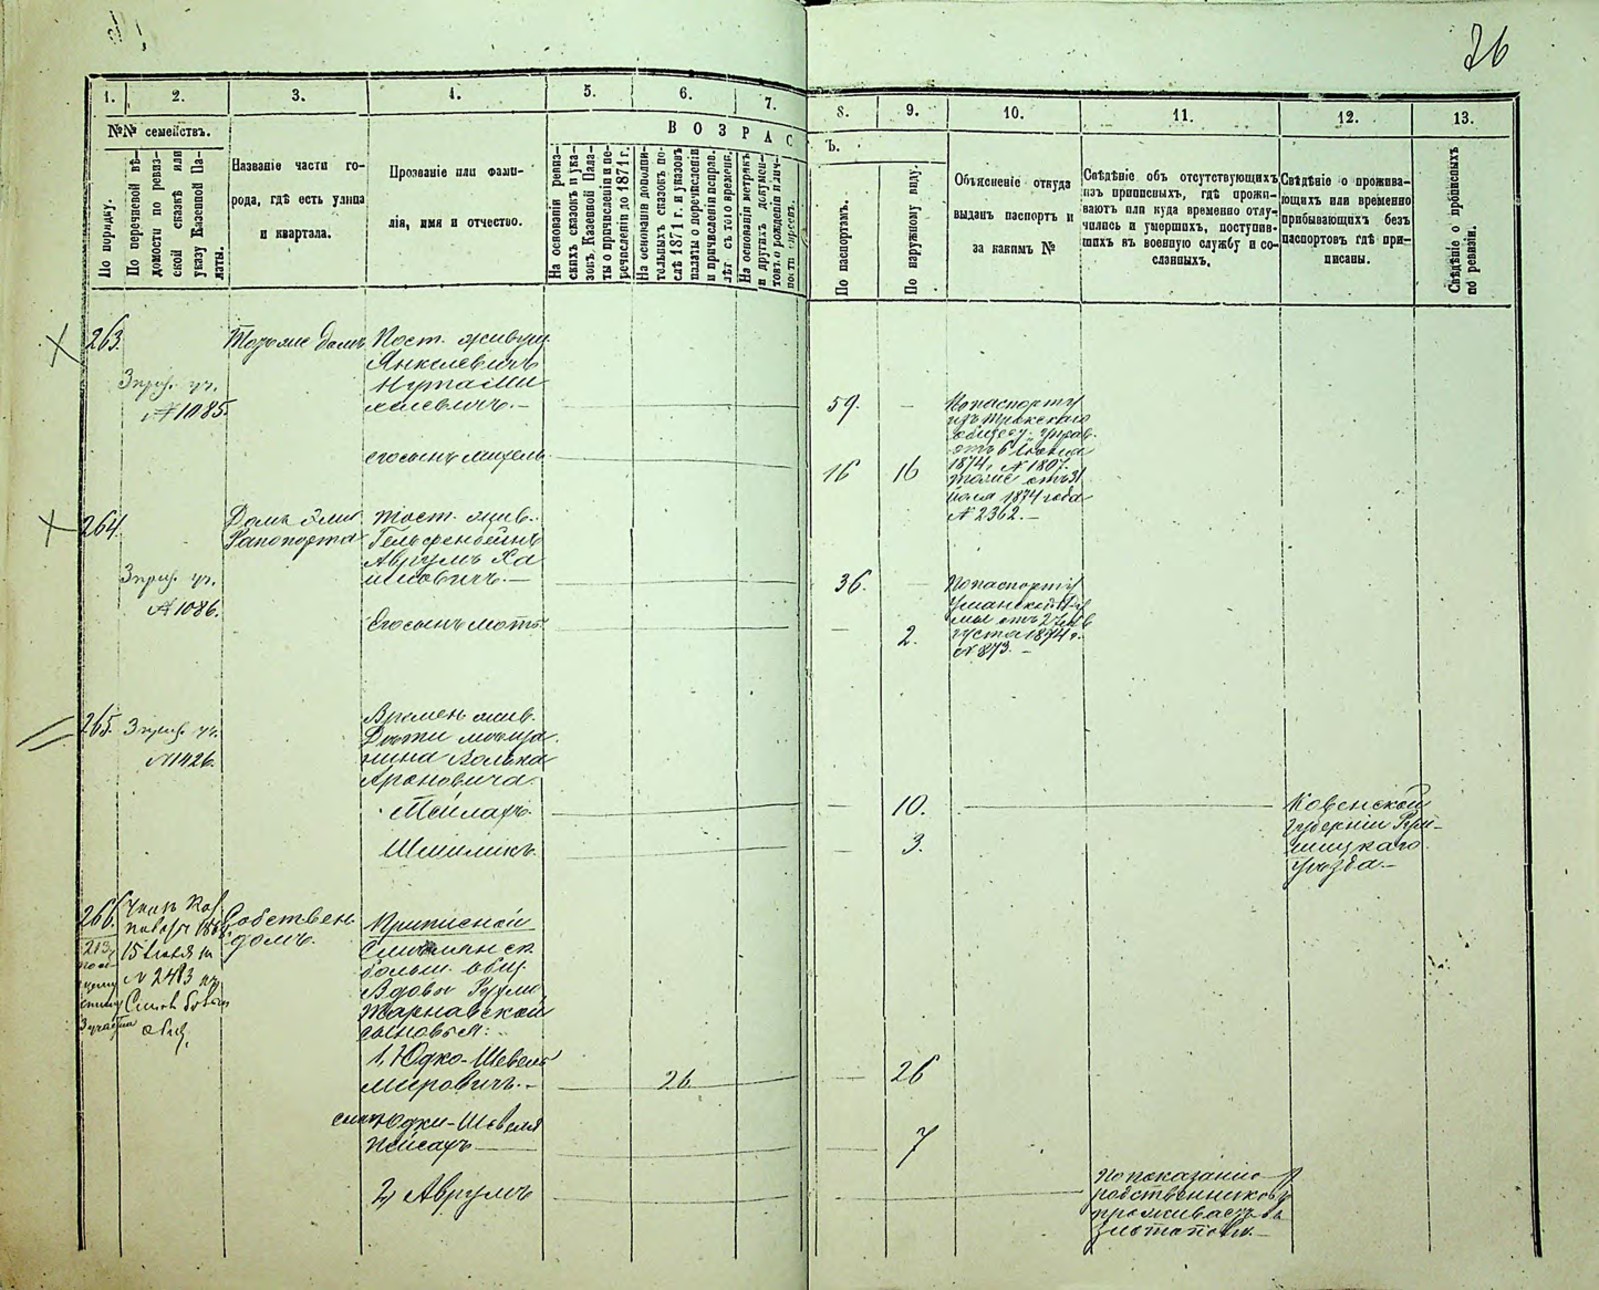 26
1. 2. 3. 4. 5. 6. 7. 8. 9. 10. 11. 12. 13.
№№ семействъ.
ВОЗРАСТЪ.
По порядку.
По перечневой вѣ-
домости по ревиз-
ской сказкѣ или
указу Казенной Па-
латы.
Названіе части го-
рода, гдѣ есть улица
и квартала.
Прозваніе или фами-
лія, имя и отчество.
На основаніи ревиз-
скихъ сказокъ и ука-
зовъ Казенной Пала-
ты о причисленіи и пе-
речисленіи до 1871 г.
На основаніи дополни-
тельныхъ сказокъ по-
слѣ 1871 г. и указовъ
палаты о перечисленіи
и причисленіи исправ.
лѣт съ того времени.
На основаніи метрикъ
и другихъ докумен-
товъ о рожденіи и лич-
ности евреевъ.
По паспортамъ.
По наружному виду.
Объясненіе откуда
выданъ паспортъ и
за какимъ №
Свѣдѣніе объ отсутствующихъ
изъ приписныхъ, гдѣ прожи-
ваютъ или куда временно отлу-
чились и умершихъ, поступив-
шихъ въ военную службу и со-
сланныхъ.
Свѣдѣніе о прожива-
ющихъ или временно
прибывающихъ безъ
паспортовъ гдѣ при-
писаны.
Свѣдѣніе о прописныхъ
по ревизіи.
263.
№ 1085.
Тогоже домъ
Пост. живущ
Янкелевичъ
Нута Ми
хелевичъ.—
59. —
По паспорту
изъ Трокскаго
общест. управ.
отъ 6 Іюня
1874. № 1807.
егосынъ Михель
16 16
Тоже отъ 31
іюля 1874 года
№ 2362.—
264.
№ 1086.
Домъ Эли
Рапопорта
Пост. жив.
Гельфенбейнъ
Аврумъ Ха
имовичъ.—
36. —
По паспорту
Уманской Ду
мы отъ 27 Ав
густа 1874 г.
№ 873.—
Егосынъ Мот
— 2.
265.
№ 1426.
Времен. жив.
Дѣти мѣща
нина Волька
Ароновича.
Мейлахъ.
— 10.
Ковенской
губерніи
уѣзда.—
Шмиликъ.
— 3.
266.
15 Іюля
№ 2483
общ.
Собствен.
домъ.
Приписной
больш. общ.
Вдовы Рухли
Жарнавской
сыновья:
1, Юдко-Шевель
Мировичъ.—
26 — 26
сынъ Юдки-Шевеля
Пейсахъ
— 7
2, Аврумъ
По показанію
родственниковъ
проживаетъ въ
Златополѣ.—